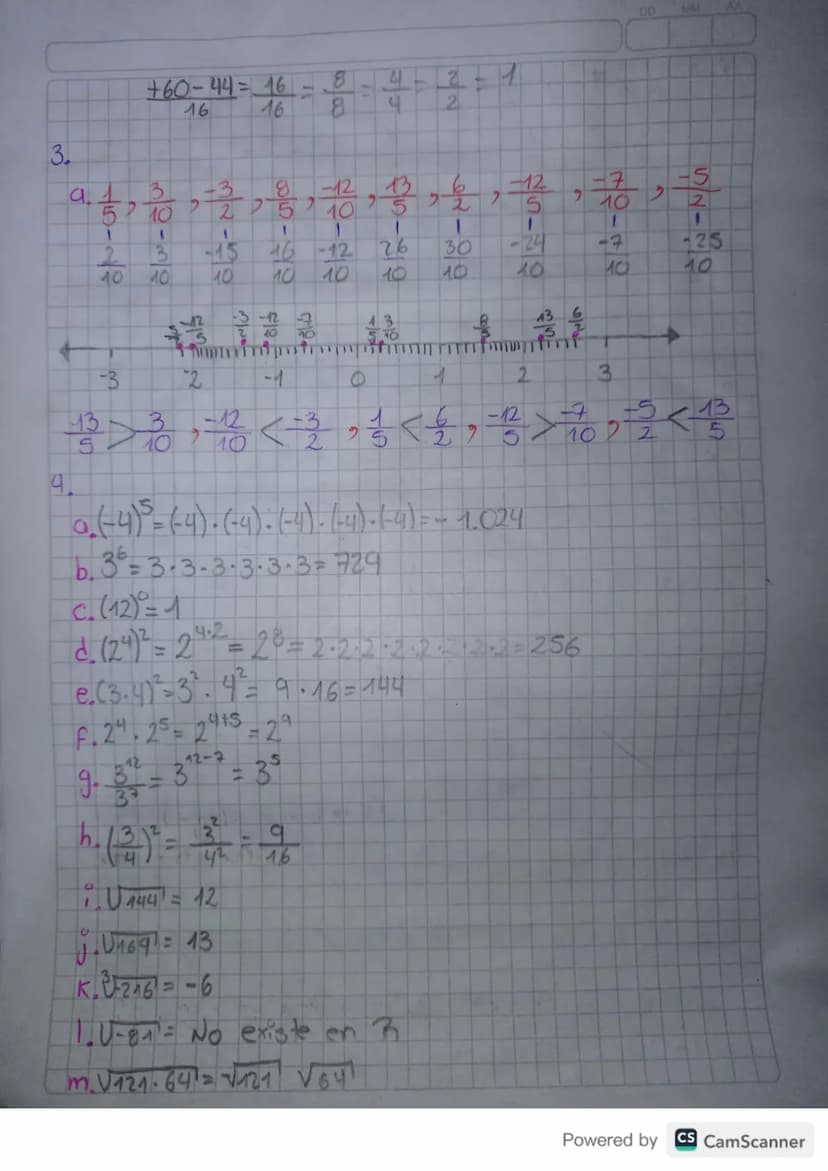 DD MM AA
+60-44/16 = 16/16 = 8/8 = 4/4 = 2/2 = 1
3.
a. 1/5, 3/10, -3/2, 8/5, -12/10, 13/5, 6/2, -12/5, -7/10, -5/2
2/10 3/10 -15/10 16/10 -12/10 26/10 30/10 -24/10 -7/10 -25/10
-12/5 -3/2 -12/10 -7/10 1/5 3/10 8/5 13/5 6/2
-3 -2 -1 0 1 2 3
13/5 > 3/10, -12/10 < -3/2, 1/5 < 6/2, -12/5 > -7/10, -5/2 < 13/5
4.
a. (-4)⁵ = (-4)·(-4)·(-4)·(-4)·(-4) = -1.024
b. 3⁶ = 3·3·3·3·3·3 = 729
c. (12)⁰ = 1
d. (2⁴)² = 2⁴·² = 2⁸ = 2·2·2·2·2·2·2·2 = 256
e. (3·4)² = 3²·4² = 9·16 = 144
f. 2⁴·2⁵ = 2⁴⁺⁵ = 2⁹
g. 3¹²/3⁷ = 3¹²⁻⁷ = 3⁵
h. (3/4)² = 3²/4² = 9/16
i. √144 = 12
j. √169 = 13
k. ³√-216 = -6
l. √-81 = No existe en R
m. √121·64 = √121 √64
Powered by CS CamScanner